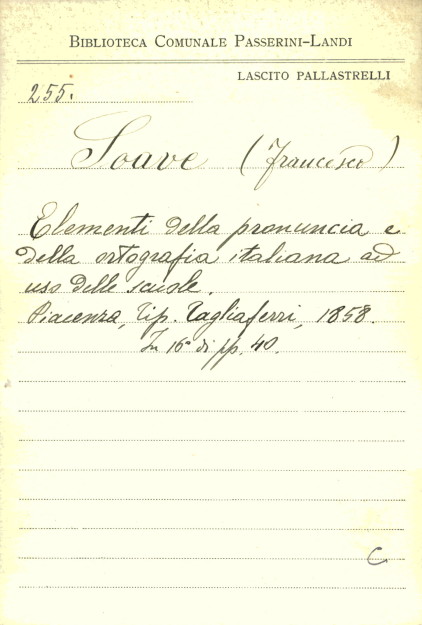 BIBLIOTECA COMUNALE PASSERINI-LANDI
LASCITO PALLASTRELLI
255.
Soave (Francesco)
Elementi della pronuncia e
della ortografia italiana ad
uso delle scuole.
Piacenza, Tip. Tagliaferri, 1858.
In 16° di pp. 40.
C